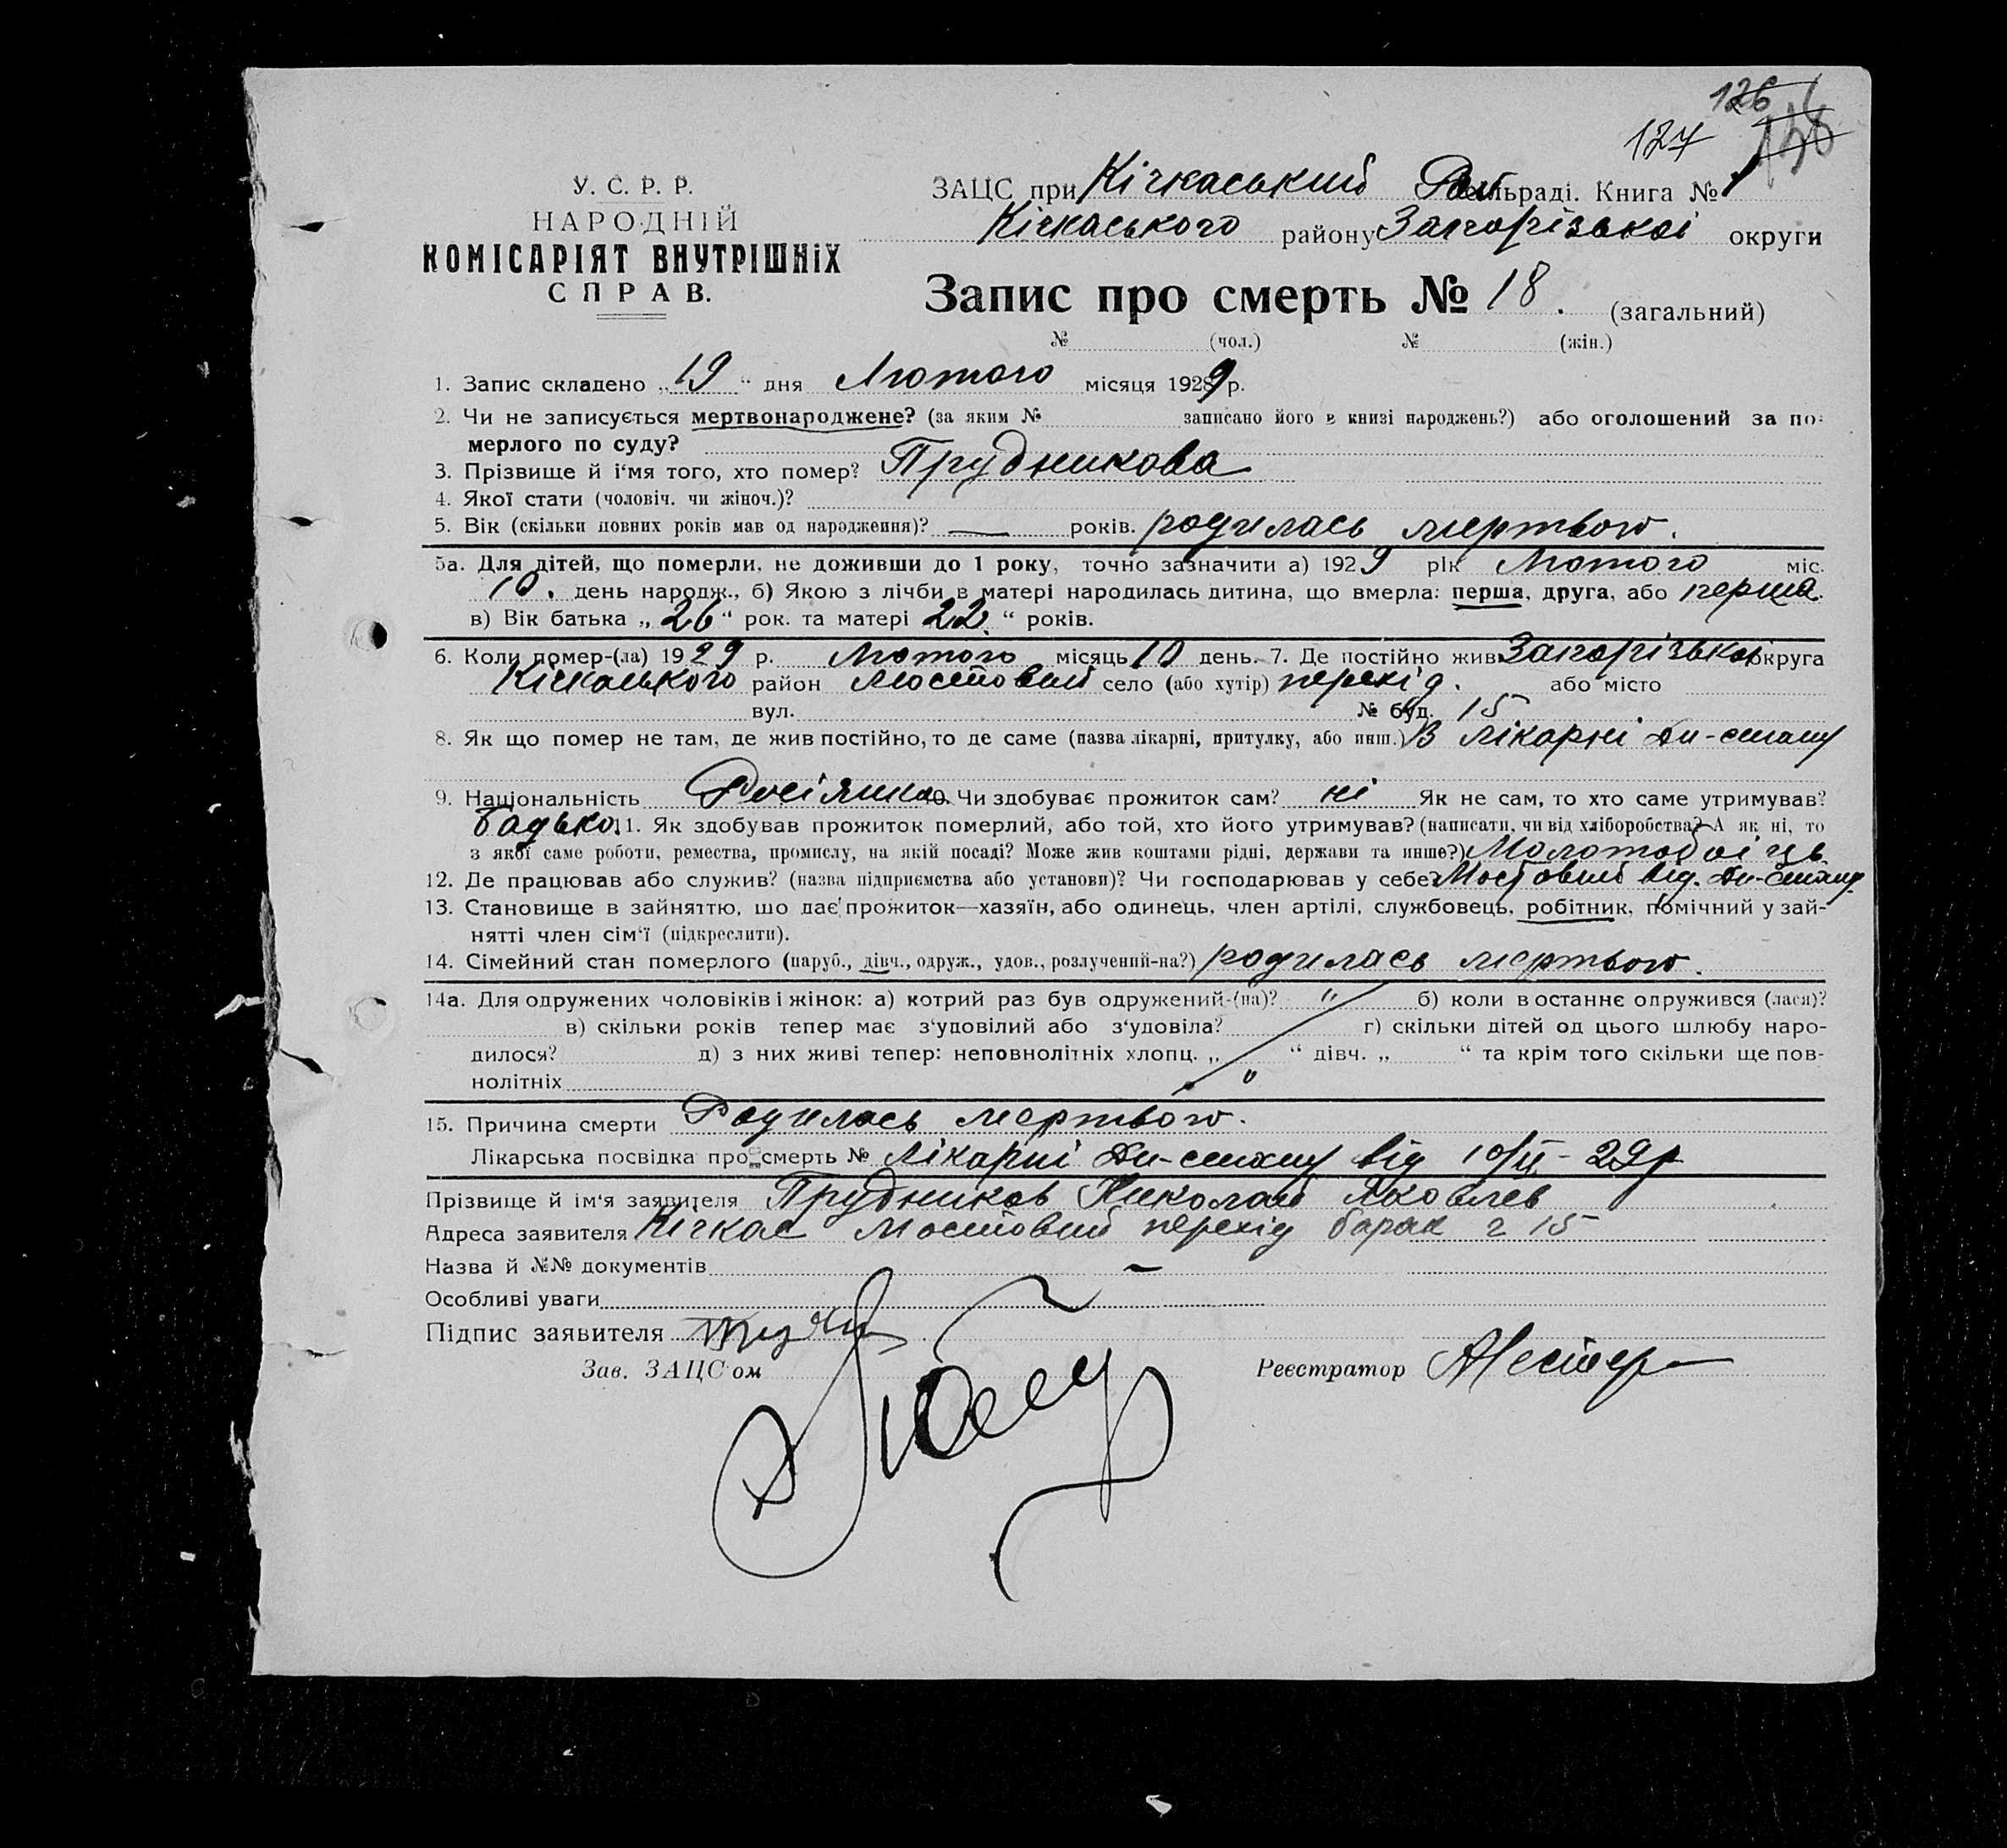 126
127
У. С. Р. Р.
НАРОДНІЙ
КОМІСАРІЯТ ВНУТРІШНіХ
СПРАВ.
ЗАЦС при Кічкаський Рай сільраді. Книга № 1
Кічкаського району Запорізької округи
Запис про смерть № 18. (загальний)
№ (чол.) № (жін.)
1. Запис складено „19“ дня Лютого місяця 1929 р.
2. Чи не записується мертвонароджене? (за яким № записано його в книзі народжень?) або оголошений за по-
мерлого по суду?
3. Прізвище й і‘мя того, хто помер? Прудникова
4. Якої стати (чоловіч. чи жіноч.)?
5. Вік (скільки повних років мав од народження)? — років. родилась мертвою.
5а. Для дітей, що померли, не доживши до 1 року, точно зазначити а) 1929 рік Лютого міс.
10. день народж., б) Якою з лічби в матері народилась дитина, що вмерла: перша, друга, або перша.
в) Вік батька „26“ рок. та матері 22 “ років.
6. Коли помер-(ла) 1929 р. Лютого місяць 10 день. 7. Де постійно жив Запорізької округа
Кічкаського район Мостовий село (або хутір) перехід. або місто
вул. № буд. 15
8. Як що помер не там, де жив постійно, то де саме (назва лікарні, притулку, або инш.) В лікарні Дн-стану
9. Національність Росіянка 10. Чи здобуває прожиток сам? ні Як не сам, то хто саме утримував?
Батько. 11. Як здобував прожиток померлий, або той, хто його утримував? (написати, чи від хліборобства? А як ні, то
з якої саме роботи, ремества, промислу, на якій посаді? Може жив коштами рідні, держави та инше?) Молотобоїць
12. Де працював або служив? (назва підприємства або установи)? Чи господарював у себе? Мостовий від. Дн-стану
13. Становище в зайняттю, що дає прожиток—хазяїн, або одинець, член артілі, службовець, робітник, помічний у зай-
нятті член сім‘ї (підкреслити).
14. Сімейний стан померлого (паруб., дівч., одруж., удов., розлучений-на?) родилась мертвою.
14а. Для одружених чоловіків і жінок: а) котрий раз був одружений-(на)? " б) коли в останнє одружився (лася)?
в) скільки років тепер має з‘удовілий або з‘удовіла? г) скільки дітей од цього шлюбу наро-
дилося? д) з них живі тепер: неповнолітніх хлопц. „ “ дівч. „ “ та крім того скільки ще пов-
нолітніх "
15. Причина смерти Родилась мертвою.
Лікарська посвідка про смерть № лікарні Дн-стану від 10/II-29р
Прізвище й ім‘я заявителя Прудников Николай Яковлев
Адреса заявителя Кічкас Мостовий перехід барак ч 15
Назва й №№ документів —
Особливі уваги
Підпис заявителя
Зав. ЗАЦС‘ом Реєстратор